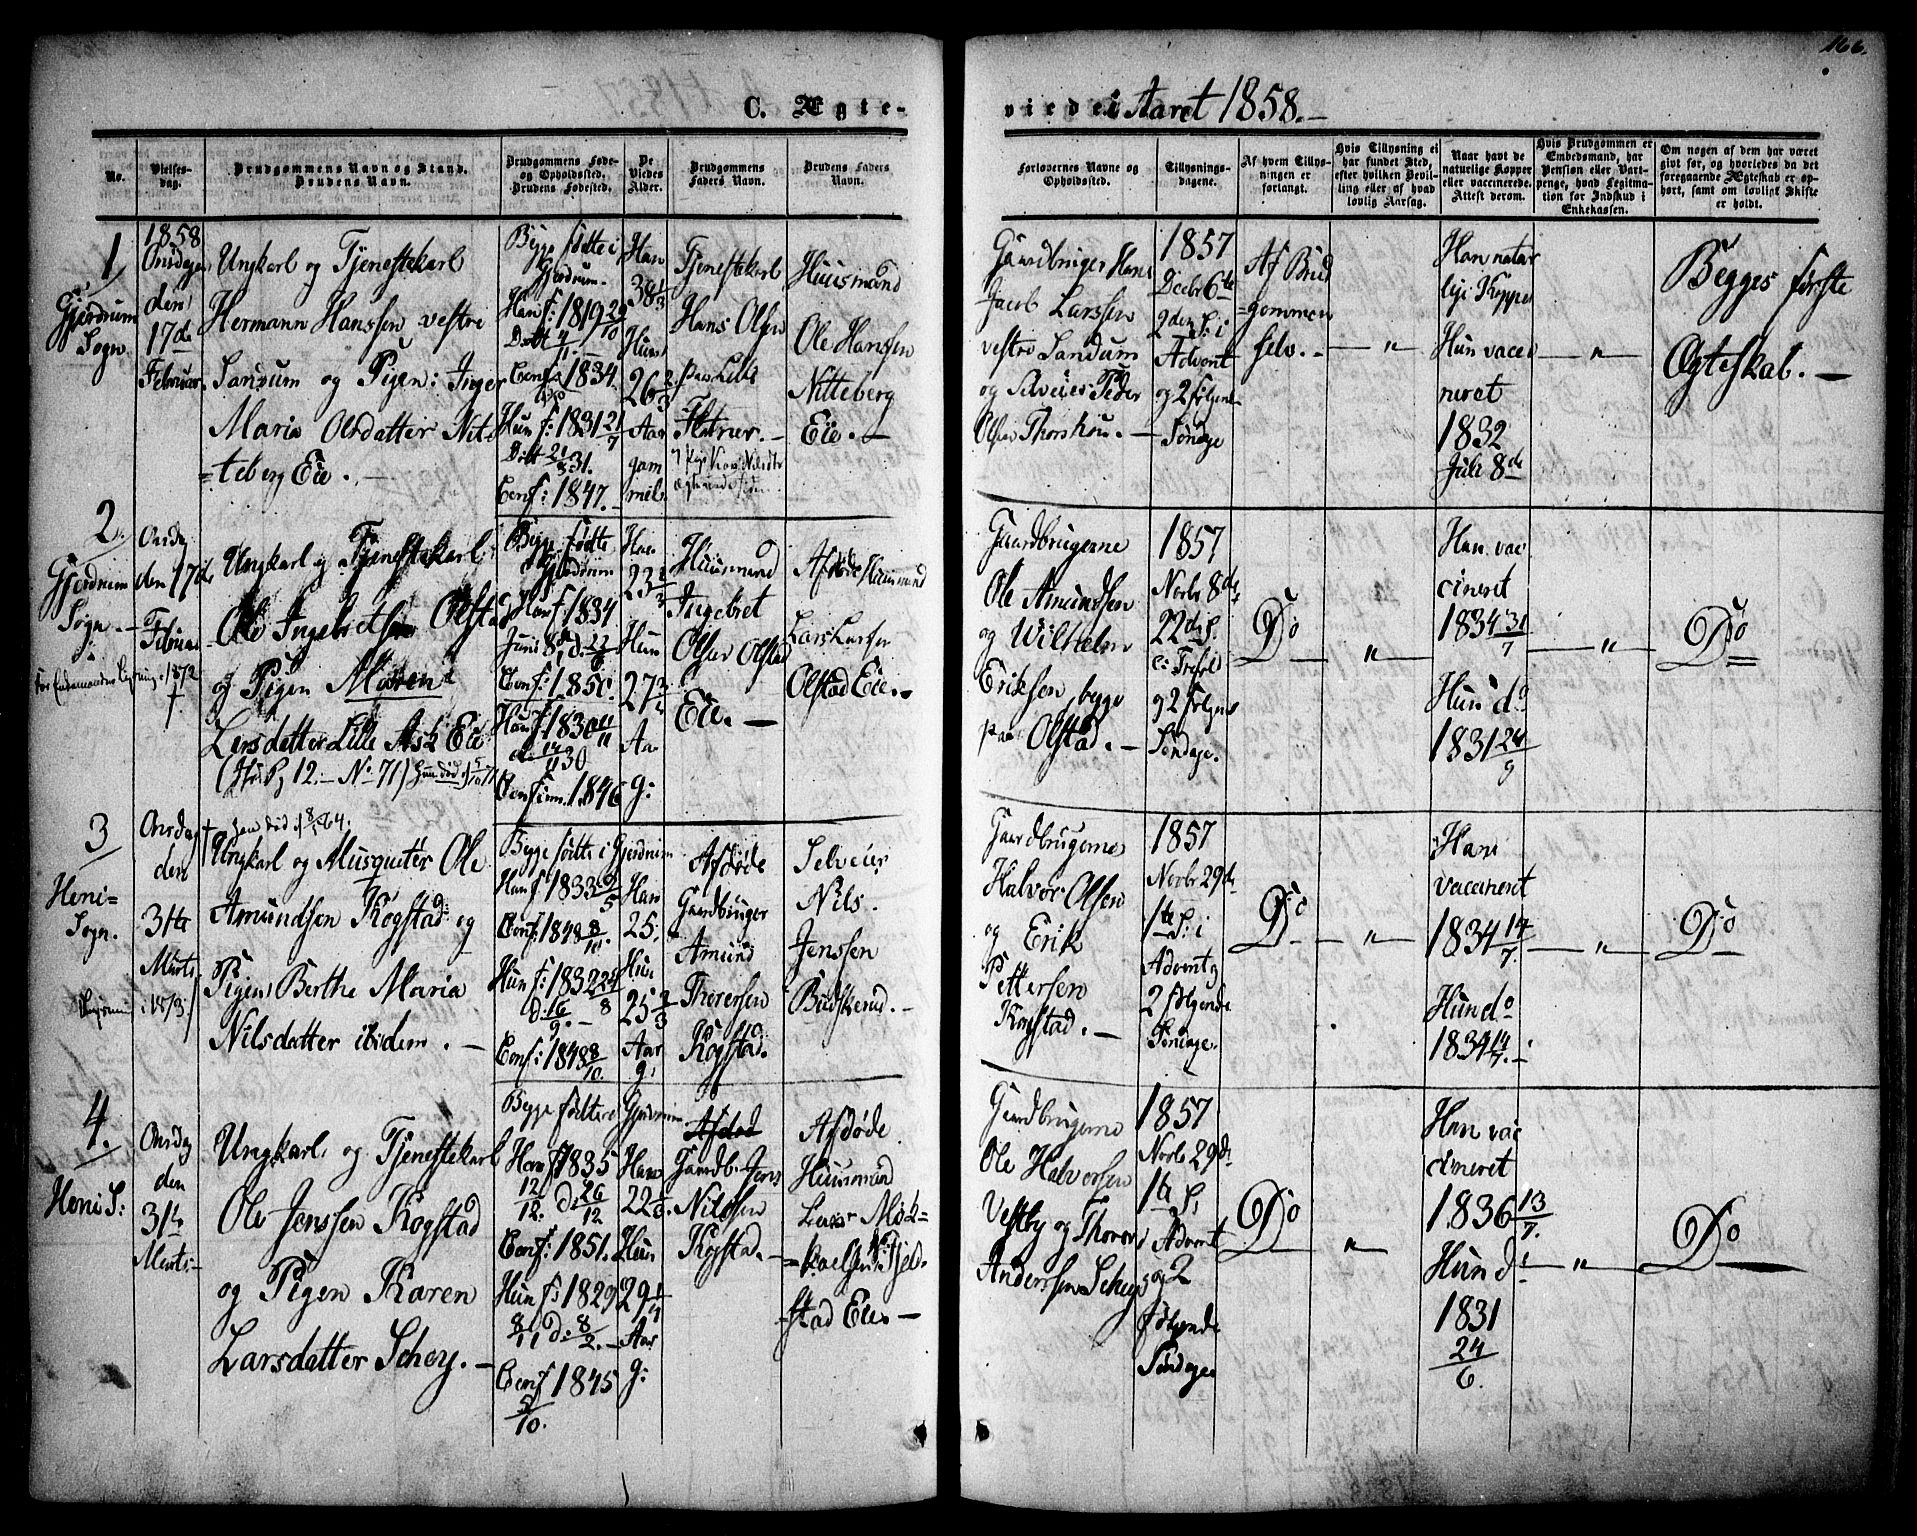 166.
C. Ægte-
viede i Aaret 1858.-
No.
Vielses-
dag.
Brudgommens Navn og Stand.
Brudens Navn.
Brudgommens Føde-
og Opholdssted.
Brudens Fødested.
De
Viedes
Alder.
Brudgommens
Faders Navn.
Brudens Faders
Navn.
Forlovernes Navne og
Opholdssted.
Tillysnings-
dagene.
Af hvem Tillys-
ningen er
forlangt.
Hvis Tillysning ei
har fundet Sted,
efter hvilken Bevil-
ling eller af hvad
lovlig Aarsag.
Naar havt de
naturlige Kopper
eller vaccinerede.
Attest derom.
Hvis Brudgommen er
Embedsmand, har
Pension eller Vart-
penge, hvad Legitima-
tion for Indskud i
Enkekassen.
Om nogen af dem har været
givt før, og hvorledes da det
foregaaende Ægteskab er op-
hørt, samt om lovligt Skifte
er holdt.
1
Gjerdrum
Sogn.
1858
Onsdagen
den
17de
Februar
Ungkarl og Tjenestekarl
Hermann Hanssen vestre
Sandum og Pigen: Inger
Maria Olsdatter Nit-
=teberg Eie. -
Begge fødte i
Gjerdrum.
Han f. 1819 29/10
Conf. 1834.
Hun f: 1831 21/7
Døbt 21/8 31.
Conf: 1847. -
Han
38 1/3
Hun
26 2/3
Aar
gam
mel.
Tjenestekarl
Hans Olsen
paa Lille
Flatner. -
Huusmand
Ole Hansen
Nitteberg
Eie. -
Gaardbruger Hans
Jacob Larssen
vestre Sandum
og Selveier Peder
Olsen Thorshou. -
1857
Decbr 6te
2den S: i
Advent
og 2 følgende
Søndage
Af Brud
=gommen
selv. -
- " -
Han natur
lige Kopper
Hun vacci
neret
1832
Juli 8de
- " -
Begges første
Ægteskab. -
2.
Gjerdrum
Sogn. -
Onsdag
den 17de
Februar
Ungkarl og Tjenestekarl
Ole Ingebretsen Olstad
og Pigen Maren
Larsdatter Lille Ask Eie
(No 71)
Begge fødte
Gjerdrum
Han f. 1834
Juni 8de
Conf: 1850.
Hun f. 1830
Confirm. 1846
Han
23
Hun
27
Aa
g:
Huusmand
Ingebret
Olsen Olstad
Eie. -
Afdøde Huusmand
Lars Larsen
Olstad Eie. -
Gaardbrugerne
Ole Amundsen
og Wilhelm
Eriksen, begge
paa Olstad. -
1857
Novbr 8de
22de S.
e: Trefol
og 2 følgende
Søndage.
Do
- " -
Han vac
cineret
1834 31/7
Hun do
1831 24/9
- " -
Do
3
Heni-
Sogn.
Onsdag
den
31te
Marts
Han død 8/5 64.
Ungkarl og Musqueter Ole
Amundsen Kogstad og
Pigen Berthe Maria
Nilsdatter ibidem. -
Begge fødte i Gjerdrum
Han f. 1833 9/5
Conf: 1848 8/10.
Hun f: 1832 24/8
d: 16/9. -
Conf: 1848 8/10.
Han
25.
Hun
25 2/3
Aar
g.
Afdøde
Gaardbruger
Amund
Thoresen
Kogstad.
Selveier
Nils
Jenssen
Budskerud. -
Gaardbrugerne
Halvor Olsen
og Erik
Pettersen
Kogstad. -
1857
Novbr 29de
1te S: i
Advent og
2 følgende
Søndage.
Do
- " -
Han
vaccineret
1834 14/7
Hun do
1834 14/7. -
- " -
Do
4.
Heni S:
Onsdag
den
31te
Marts. -
Ungkarl og Tjenestekarl
Ole Jenssen Kogstad
og Pigen Karen
Larsdatter Schey. -
Begge fødte i Gjerdrum
Han f. 1835
12/12. D: 26/12
Conf: 1851.
Hun f: 1829
8/11 d: 8/2. -
Conf 1845
5/10.
Han
22
Hun
29 1/4
Aar
g:
Afdød
Gaardb. Jens
Nilssen
Kogstad. -
Afdøde
Huusmand
Lars Mik=
=kaelsen Fjeld-
=stad Eie. -
Gaardbrugerne
Ole Halvorsen
Vestby og Thorer
Anderssen Schey
1857
Novbr 29de
1te S. i
Advent
og 2
følgende
Søndage
Do
- " -
Han vac
cineret
1836 13/7.
Hun d
1831
24/6.
- " -
Do